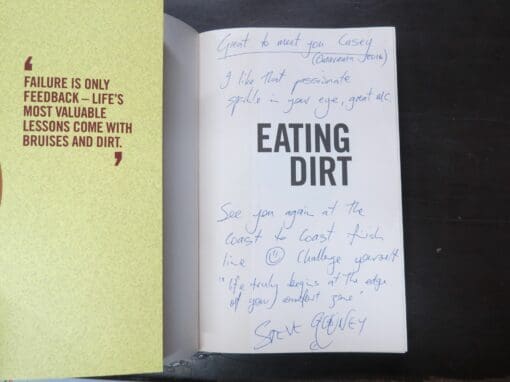 ‘
FAILURE IS ONLY
FEEDBACK – LIFE'S
MOST VALUABLE
LESSONS COME WITH
BRUISES AND DIRT.
’
Great to meet you Casey
I like that passionate
sparkle in your eye, great
EATING
DIRT
See you again at the
Coast to Coast finish
line ☺ Challenge yourself
"life truly begins at the edge
of your comfort zone"
STEVE GURNEY